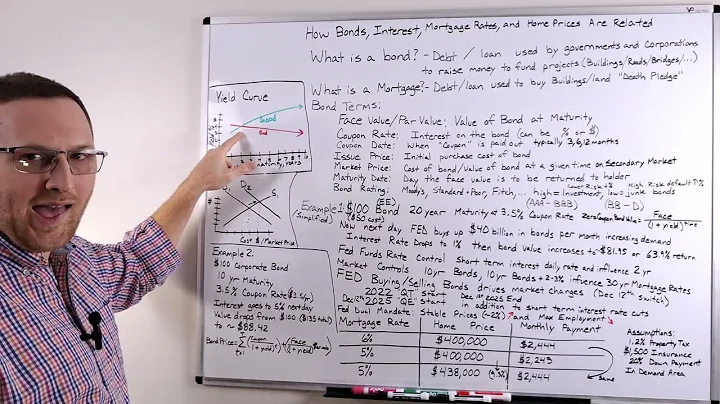 How Bonds, Interest, Mortgage Rates, and Home Prices Are Related
What is a bond? - Debt / loan used by governments and Corporations
to raise money to fund projects (Buildings/Roads/Bridges/...)
What is a Mortgage? - Debt/loan used to buy Buildings/land "Death Pledge"
Bond Terms:
Face Value/Par Value: Value of Bond at Maturity
Coupon Rate: Interest on the bond (can be % or $)
Coupon Date: When "Coupon" is paid out typically 3,6,12 months
Issue Price: Initial purchase cost of bond
Market Price: Cost of bond/value of bond at a given time on Secondary Market
Maturity Date: Day the face value is to be returned to holder
Bond Rating: Moody's, Standard + Poor, Fitch,... high = Investment, low = junk bonds
(AAA - BBB) (BB - D)
Yield Curve
Good
Bad
maturity, years
D2
S1
$
Cost $/Market Price
Example 1: $100 Bond 20 year Maturity at 3.5% Coupon Rate
(EE)
(Simplified)
($50 cost)
Zero Coupon Bond Value = Face / (1 + yield)^time
Now next day FED buys up $40 billion in bonds per month increasing demand
Interest Rate Drops to 1% then bond value increases to $81.95 or 63.9% return
Fed Funds Rate control Short term interest daily rate and influence 2 yr
Market Controls 10yr Bonds, 10yr Bonds + 2-3% influence 30 yr Mortgage Rates
FED Buying/Selling Bonds drives market changes (Dec 12th switch)
2022 "QT" Start Dec 1st 2025 End
Dec 12th 2025 "QE" Start in addition to short term interest rate cuts
Fed Dual Mandate: Stable Prices (~2%) and Max Employment
Example 2:
$100 corporate Bond
10 yr Maturity
3.5% Coupon Rate
Interest goes to 5% next day
Value drops from $100 ($135 total)
to ~ $88.42
Mortgage Rate Home Price Monthly Payment
6% $400,000 $2,444
5% $400,000 $2,243
5% $438,000 $2,444
Same
Assumptions:
1.2% Property Tax
$1,500 Insurance
20% Down Payment
In Demand Area